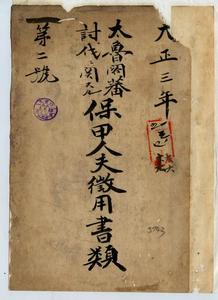 大正三年
太魯閣蕃
討伐ニ関スル
保甲人夫徴用書類
第二號